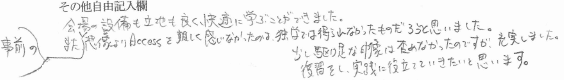 その他自由記入欄
会場の設備も立地も良く、快適に学ぶことができました。
また、想像よりAccessを難しく感じなかったのは、独学では得られなかったものだろうと思いました。
少し駆け足な印象は否めなかったのですが、充実しました。
復習をし、実践に役立てていきたいと思います。
事前の